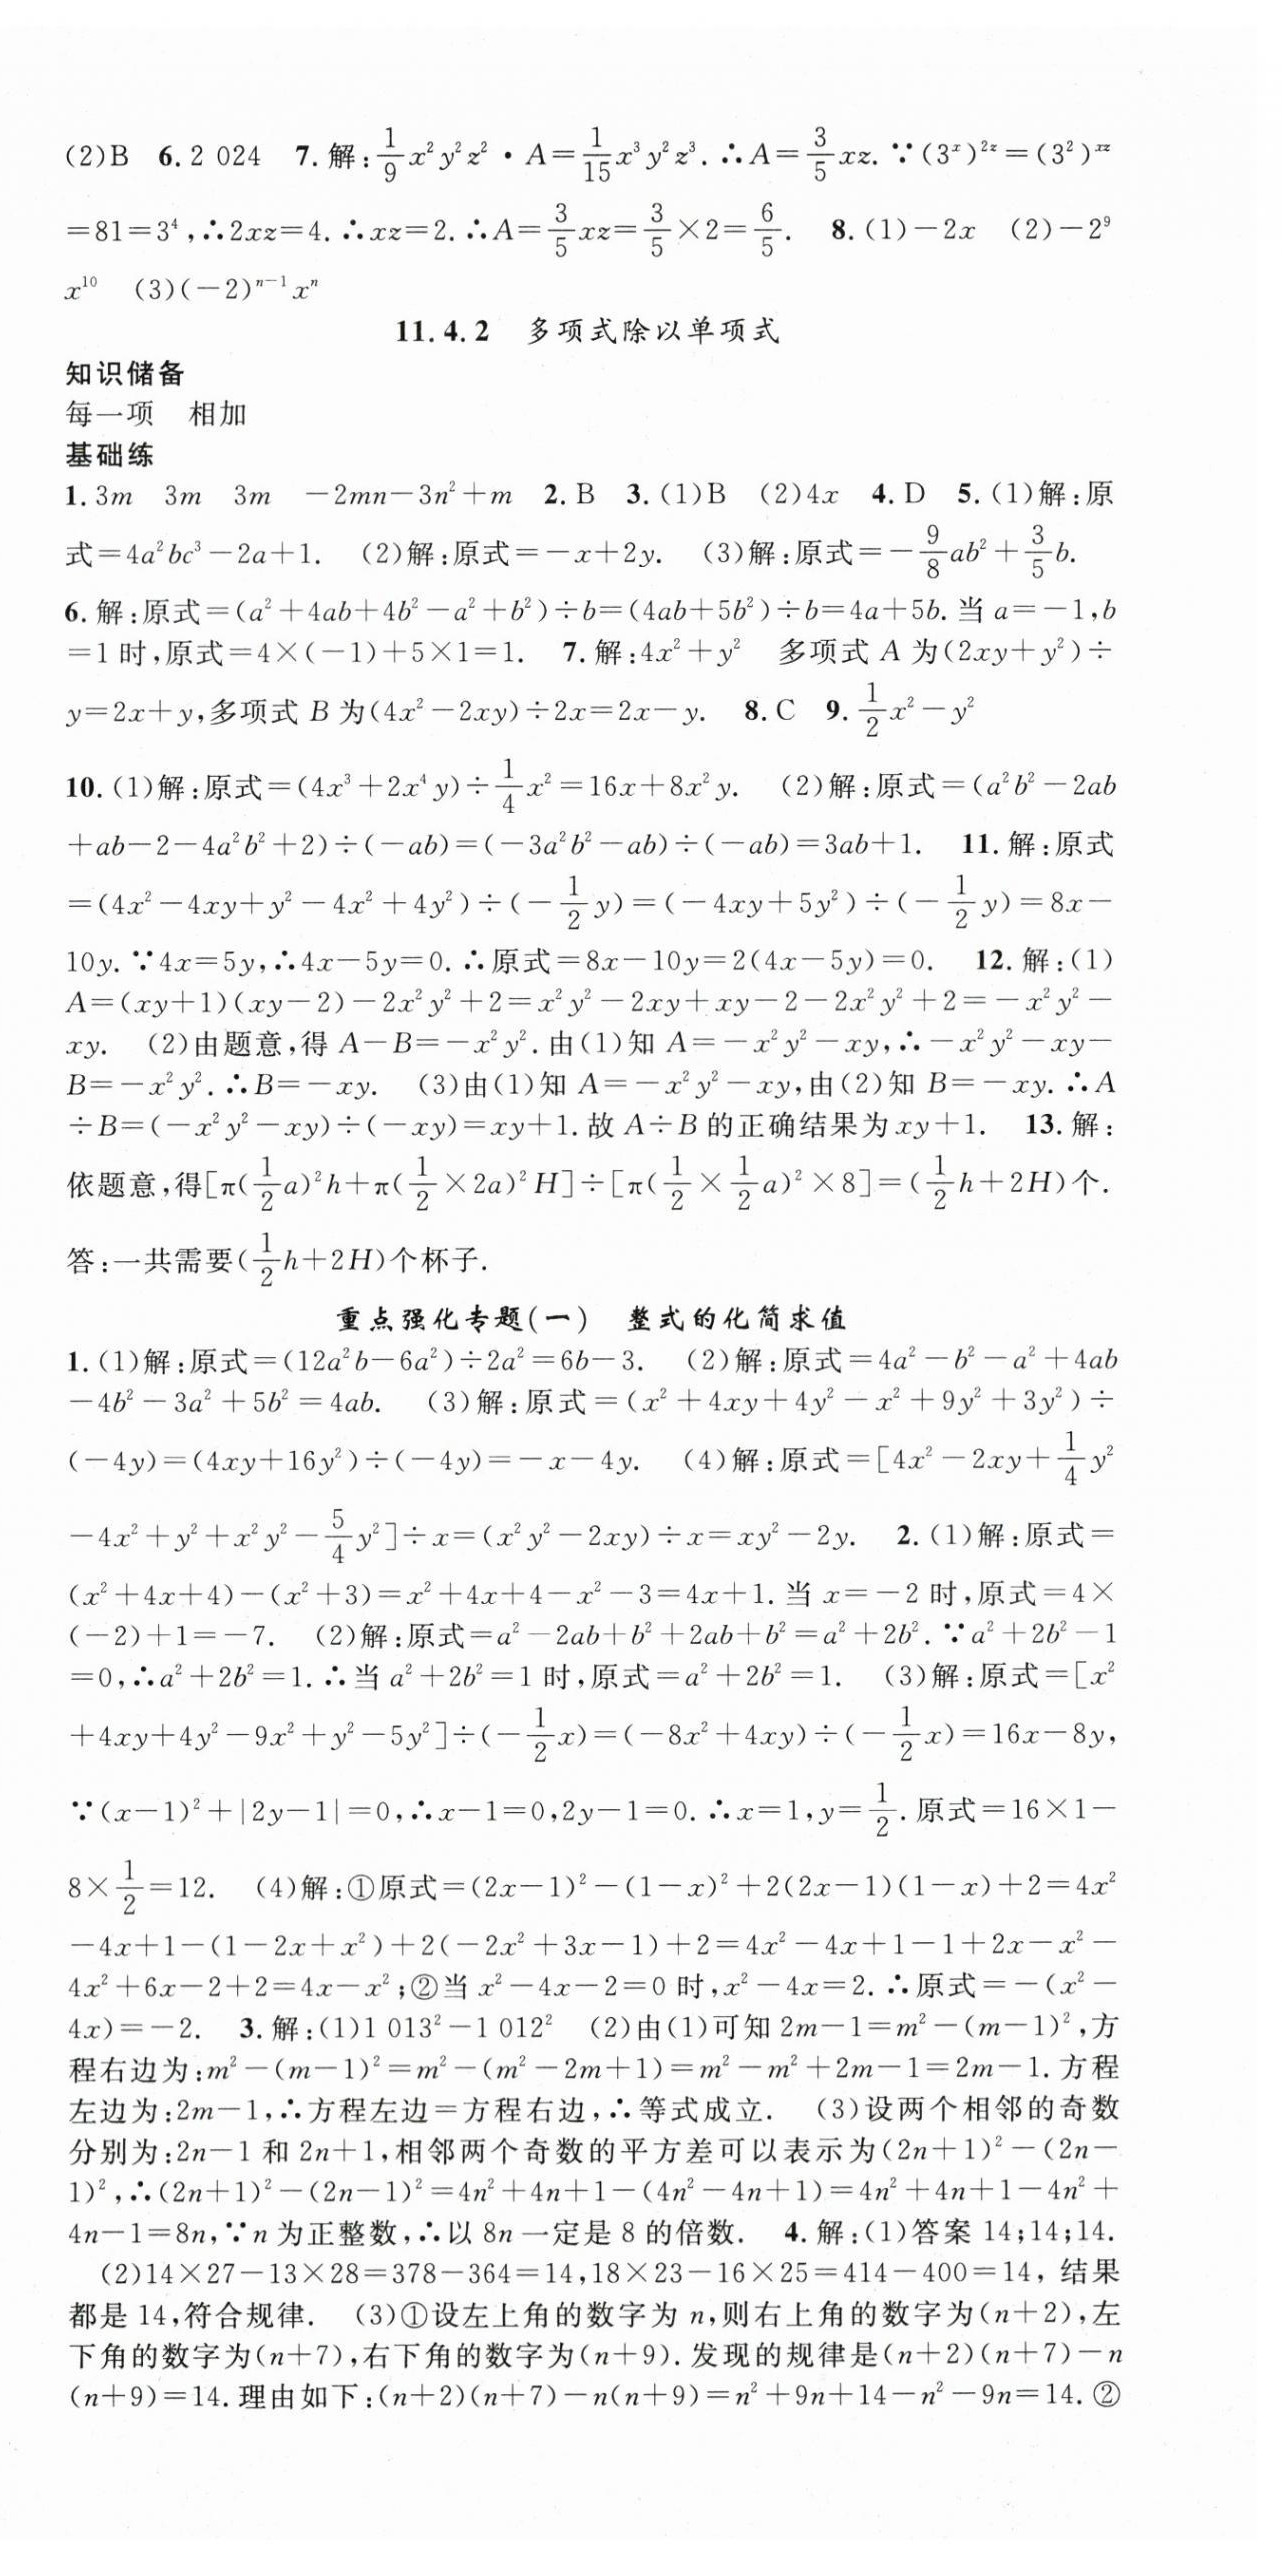 (2)B 6.2 024 7.解:$\frac{1}{9}x^2y^2z^2·A=\frac{1}{15}x^3y^2z^3$.∴$A=\frac{3}{5}xz$.∵$(3^x)^{2z}=(3^2)^{xz}$
$=81=3^4$,∴$2xz=4$.∴$xz=2$.∴$A=\frac{3}{5}xz=\frac{3}{5}×2=\frac{6}{5}$. 8.(1)$-2x$ (2)$-2^9$
$x^{10}$ (3)$(-2)^{n-1}x^n$
11.4.2 多项式除以单项式
知识储备
每一项 相加
基础练
1.$3m$ $3m$ $3m$ $-2mn-3n^2+m$ 2.B 3.(1)B (2)$4x$ 4.D 5.(1)解:原
式$=4a^2bc^3-2a+1$. (2)解:原式$=-x+2y$. (3)解:原式$=-\frac{9}{8}ab^2+\frac{3}{5}b$.
6.解:原式$=(a^2+4ab+4b^2-a^2+b^2)÷b=(4ab+5b^2)÷b=4a+5b$.当$a=-1$,$b$
$=1$时,原式$=4×(-1)+5×1=1$. 7.解:$4x^2+y^2$ 多项式$A$为$(2xy+y^2)÷$
$y=2x+y$,多项式$B$为$(4x^2-2xy)÷2x=2x-y$. 8.C 9.$\frac{1}{2}x^2-y^2$
10.(1)解:原式$=(4x^3+2x^4y)÷\frac{1}{4}x^2=16x+8x^2y$. (2)解:原式$=(a^2b^2-2ab$
$+ab-2-4a^2b^2+2)÷(-ab)=(-3a^2b^2-ab)÷(-ab)=3ab+1$. 11.解:原式
$=(4x^2-4xy+y^2-4x^2+4y^2)÷(-\frac{1}{2}y)=(-4xy+5y^2)÷(-\frac{1}{2}y)=8x-$
$10y$.∵$4x=5y$,∴$4x-5y=0$.∴原式$=8x-10y=2(4x-5y)=0$. 12.解:(1)
$A=(xy+1)(xy-2)-2x^2y^2+2=x^2y^2-2xy+xy-2-2x^2y^2+2=-x^2y^2-$
$xy$. (2)由题意,得$A-B=-x^2y^2$.由(1)知$A=-x^2y^2-xy$,∴$-x^2y^2-xy-$
$B=-x^2y^2$.∴$B=-xy$. (3)由(1)知$A=-x^2y^2-xy$,由(2)知$B=-xy$.∴$A$
$÷B=(-x^2y^2-xy)÷(-xy)=xy+1$.故$A÷B$的正确结果为$xy+1$. 13.解:
依题意,得$[π(\frac{1}{2}a)^2h+π(\frac{1}{2}×2a)^2H]÷[π(\frac{1}{2}×\frac{1}{2}a)^2×8]=(\frac{1}{2}h+2H)$个.
答:一共需要$(\frac{1}{2}h+2H)$个杯子.
重点强化专题(一) 整式的化简求值
1.(1)解:原式$=(12a^2b-6a^2)÷2a^2=6b-3$. (2)解:原式$=4a^2-b^2-a^2+4ab$
$-4b^2-3a^2+5b^2=4ab$. (3)解:原式$=(x^2+4xy+4y^2-x^2+9y^2+3y^2)÷$
$(-4y)=(4xy+16y^2)÷(-4y)=-x-4y$. (4)解:原式$=[4x^2-2xy+\frac{1}{4}y^2$
$-4x^2+y^2+x^2y^2-\frac{5}{4}y^2]÷x=(x^2y^2-2xy)÷x=xy^2-2y$. 2.(1)解:原式$=$
$(x^2+4x+4)-(x^2+3)=x^2+4x+4-x^2-3=4x+1$.当$x=-2$时,原式$=4×$
$(-2)+1=-7$. (2)解:原式$=a^2-2ab+b^2+2ab+b^2=a^2+2b^2$.∵$a^2+2b^2-1$
$=0$,∴$a^2+2b^2=1$.∴当$a^2+2b^2=1$时,原式$=a^2+2b^2=1$. (3)解:原式$=[x^2$
$+4xy+4y^2-9x^2+y^2-5y^2]÷(-\frac{1}{2}x)=(-8x^2+4xy)÷(-\frac{1}{2}x)=16x-8y$,
∵$(x-1)^2+|2y-1|=0$,∴$x-1=0$,$2y-1=0$.∴$x=1$,$y=\frac{1}{2}$.原式$=16×1-$
$8×\frac{1}{2}=12$. (4)解:①原式$=(2x-1)^2-(1-x)^2+2(2x-1)(1-x)+2=4x^2$
$-4x+1-(1-2x+x^2)+2(-2x^2+3x-1)+2=4x^2-4x+1-1+2x-x^2-$
$4x^2+6x-2+2=4x-x^2$;②当$x^2-4x-2=0$时,$x^2-4x=2$.∴原式$=-(x^2-$
$4x)=-2$. 3.解:(1)$1 013^2-1 012^2$ (2)由(1)可知$2m-1=m^2-(m-1)^2$,方
程右边为:$m^2-(m-1)^2=m^2-(m^2-2m+1)=m^2-m^2+2m-1=2m-1$.方程
左边为:$2m-1$,∴方程左边=方程右边,∴等式成立. (3)设两个相邻的奇数
分别为:$2n-1$和$2n+1$,相邻两个奇数的平方差可以表示为$(2n+1)^2-(2n-$
$1)^2$,∴$(2n+1)^2-(2n-1)^2=4n^2+4n+1-(4n^2-4n+1)=4n^2+4n+1-4n^2+$
$4n-1=8n$,∵$n$为正整数,∴以$8n$一定是8的倍数. 4.解:(1)答案14;14;14.
(2)$14×27-13×28=378-364=14$,$18×23-16×25=414-400=14$,结果
都是14,符合规律. (3)①设左上角的数字为$n$,则右上角的数字为$(n+2)$,左
下角的数字为$(n+7)$,右下角的数字为$(n+9)$.发现的规律是$(n+2)(n+7)-n$
$(n+9)=14$.理由如下:$(n+2)(n+7)-n(n+9)=n^2+9n+14-n^2-9n=14$.②